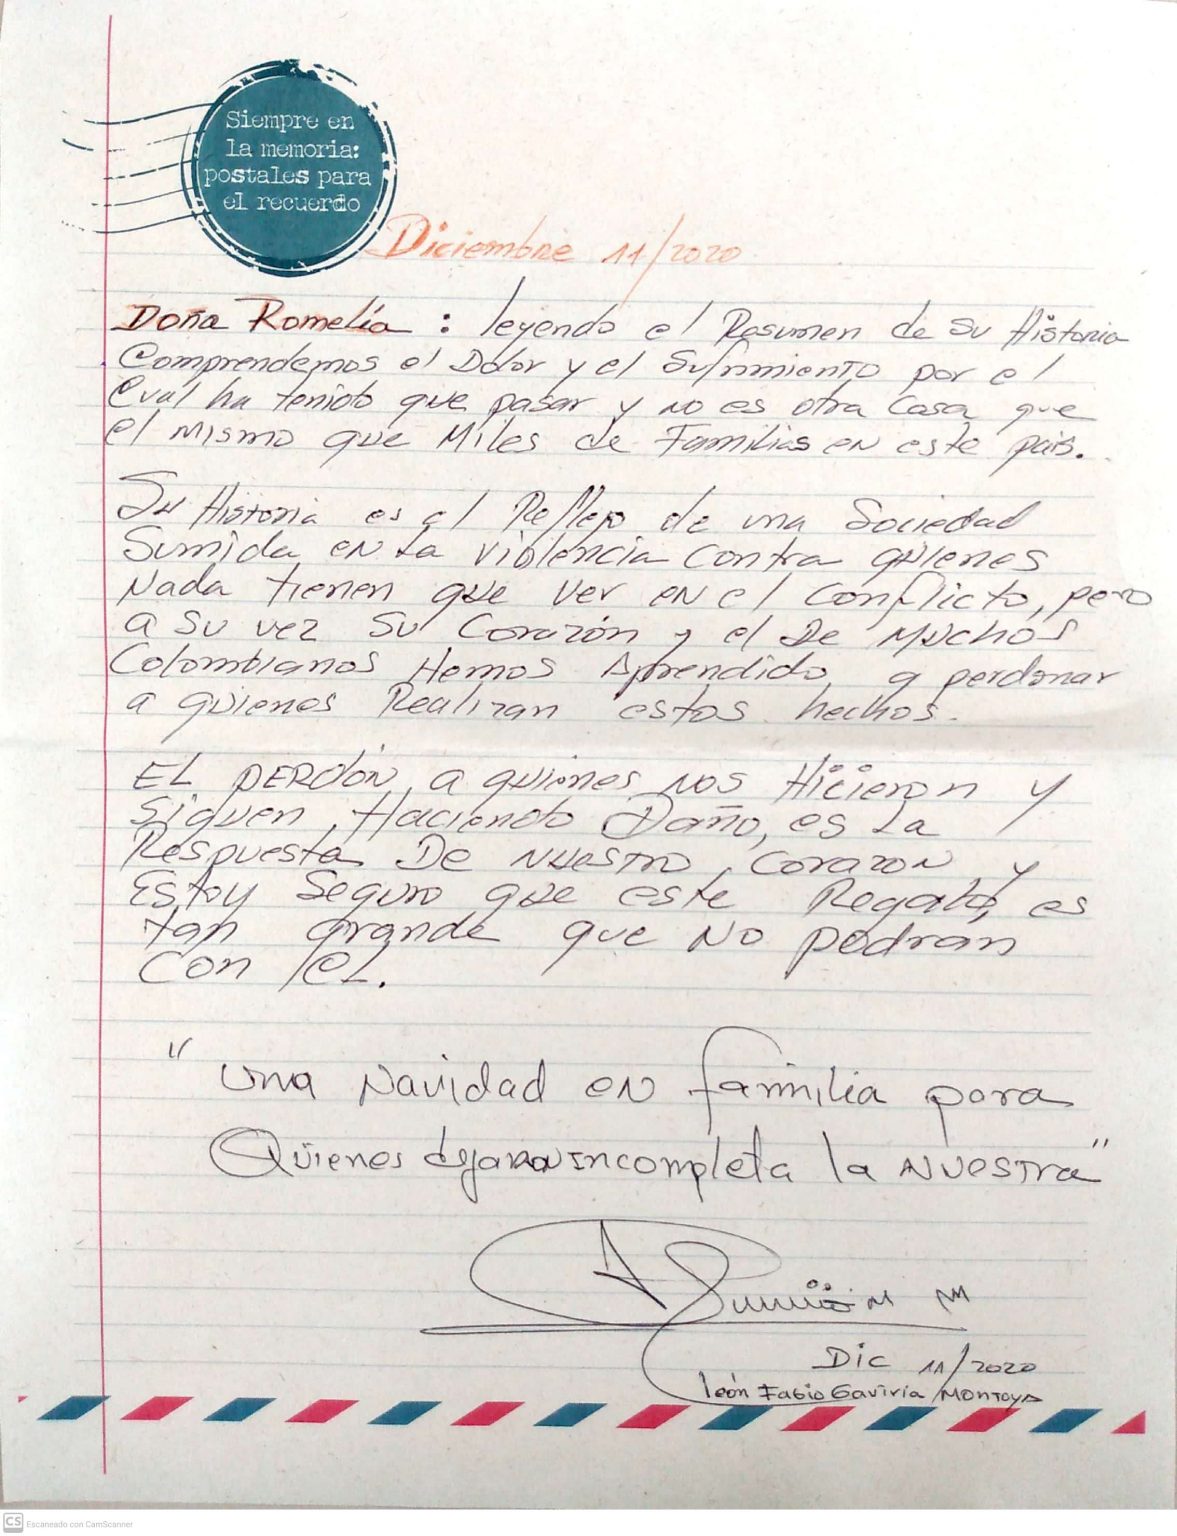 Siempre en
la memoria:
postales para
el recuerdo
Diciembre 11/2020
Doña Romelia : leyendo el Resumen de su Historia
Comprendemos el Dolor y el Sufrimiento por el
Cual ha tenido que pasar y no es otra Cosa que
el mismo que Miles de Familias en este país.
Su Historia es el Reflejo de una Sociedad
Sumida en la violencia contra quienes
Nada tienen que ver en el Conflicto, pero
a su vez su Corazón y el De Muchos
Colombianos Hemos Aprendido a perdonar
a quienes Realizan estos hechos.
El PERDÓN a quienes nos Hicieron y
Siguen Haciendo Daño, es la
Respuesta De Nuestro Corazon y
Estoy Seguro que este Regalo, es
tan grande que No podran
Con él.
"una Navidad en familia para
Quienes dejaron incompleta la Nuestra"
Dic 11/2020
león Fabio Gaviria Montoya
CS Escaneado con CamScanner